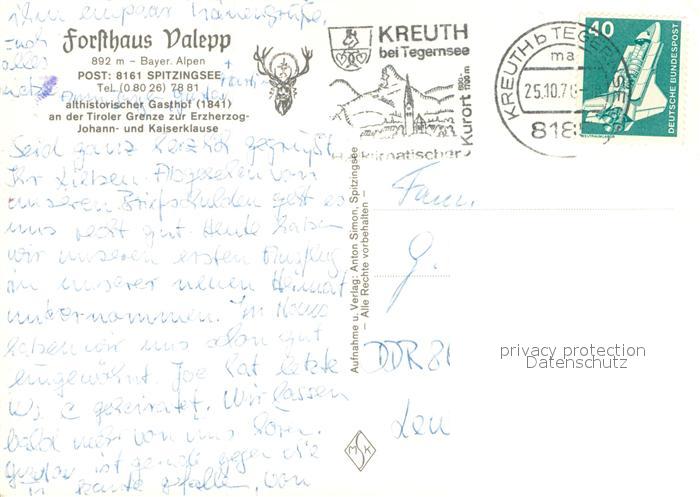 Forsthaus Valepp
892 m – Bayer. Alpen
POST: 8161 SPITZINGSEE
Tel. (0 80 26) 78 81
althistorischer Gasthof (1841)
an der Tiroler Grenze zur Erzherzog-
Johann- und Kaiserklause
KREUTH
bei Tegernsee
Kurort
800-
1100 m
klimatischer
KREUTH b TEGERNSEE
ma
25.10.7
818
40
DEUTSCHE BUNDESPOST
Seid ganz herzlich gegrüßt,
Ihr Lieben. Abgesehen von
unseren Briefschulden geht es
uns recht gut. Heute haben
wir unseren ersten Ausflug
in unserer neuen Heimat
unternommen. Im Haus
haben wir uns schon gut
eingewöhnt. Joe hat letzte
Wo geheiratet. Wir lassen
bald mehr von uns hören.
ist gerade gegen die
Kante gefallen, von
Aufnahme u. Verlag: Anton Simon, Spitzingsee
– Alle Rechte vorbehalten –
MSK
Fam.
G.
DDR 81
Leu
privacy protection
Datenschutz